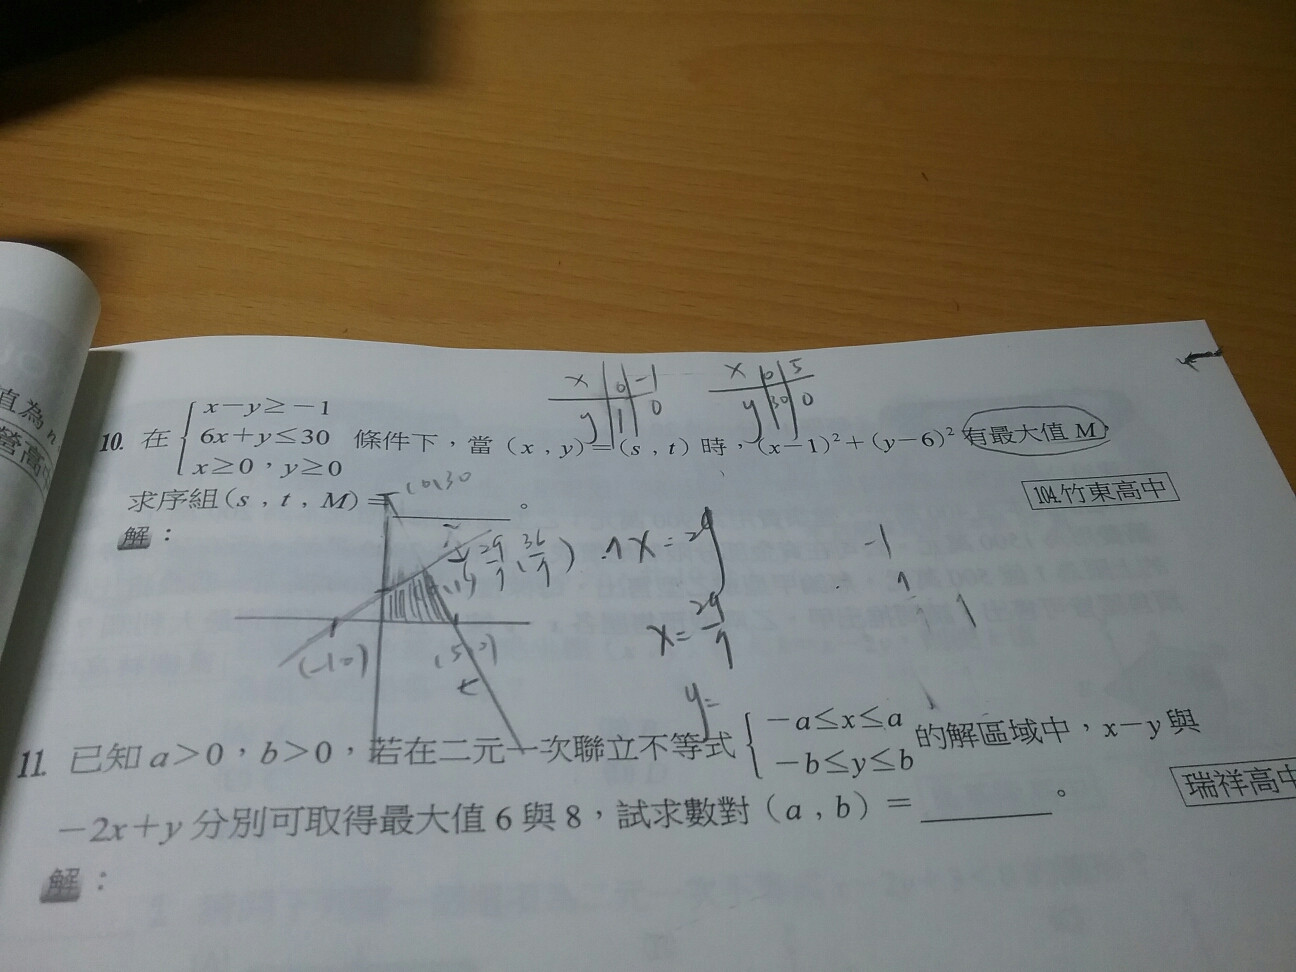 值為n
營高中
x 0 -1
y 1 0
x 0 5
y 30 0
10. 在 { x-y≥-1
6x+y≤30 條件下，當（x , y）=（s , t）時，(x-1)²+(y-6)² 有最大值 M，
x≥0，y≥0
求序組(s , t , M)=________。
104.竹東高中
解：
(0,30
(29/7, 36/7)
7x=29
x=29/7
y=
-1
(-1,0)
(5,0)
11. 已知 a>0，b>0，若在二元一次聯立不等式 { -a≤x≤a
-b≤y≤b 的解區域中，x-y 與
-2x+y 分別可取得最大值 6 與 8，試求數對（a , b）=________。
瑞祥高中
解：